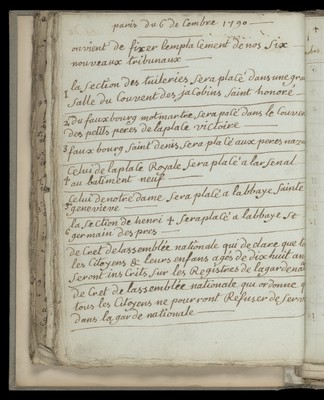 paris du 6 de Cembre 1790
onvient de fixer lemplacement de nos six
nouveaux tribunaux
1 la section des tuileries sera placé dans une gra
salle du Couvent des jacobins saint honoré
2 du fauxbourg motmartre sera placé dans le Couven
des petits peres de laplace victoire
3 faux bourg saint denis, sera placé aux peres naza
Celui de laplace Royale sera placé a larsenal
4 au batiment neuf
Celui de notre dame sera placé a labbaye sainte
5 genevieve
la section de henri 4 sera placé a labbaye st
6 germain des pres
de Cret de lassemblée nationale qui de clare que to
les Citoyens & leurs enfans agés de dix huit an
seront ins Crits sur les Registres de lagarde na
de Cret de lassemblée nationale qui ordonne q
tous les Citoyens ne pourront Refuser de serv
dans la garde nationale